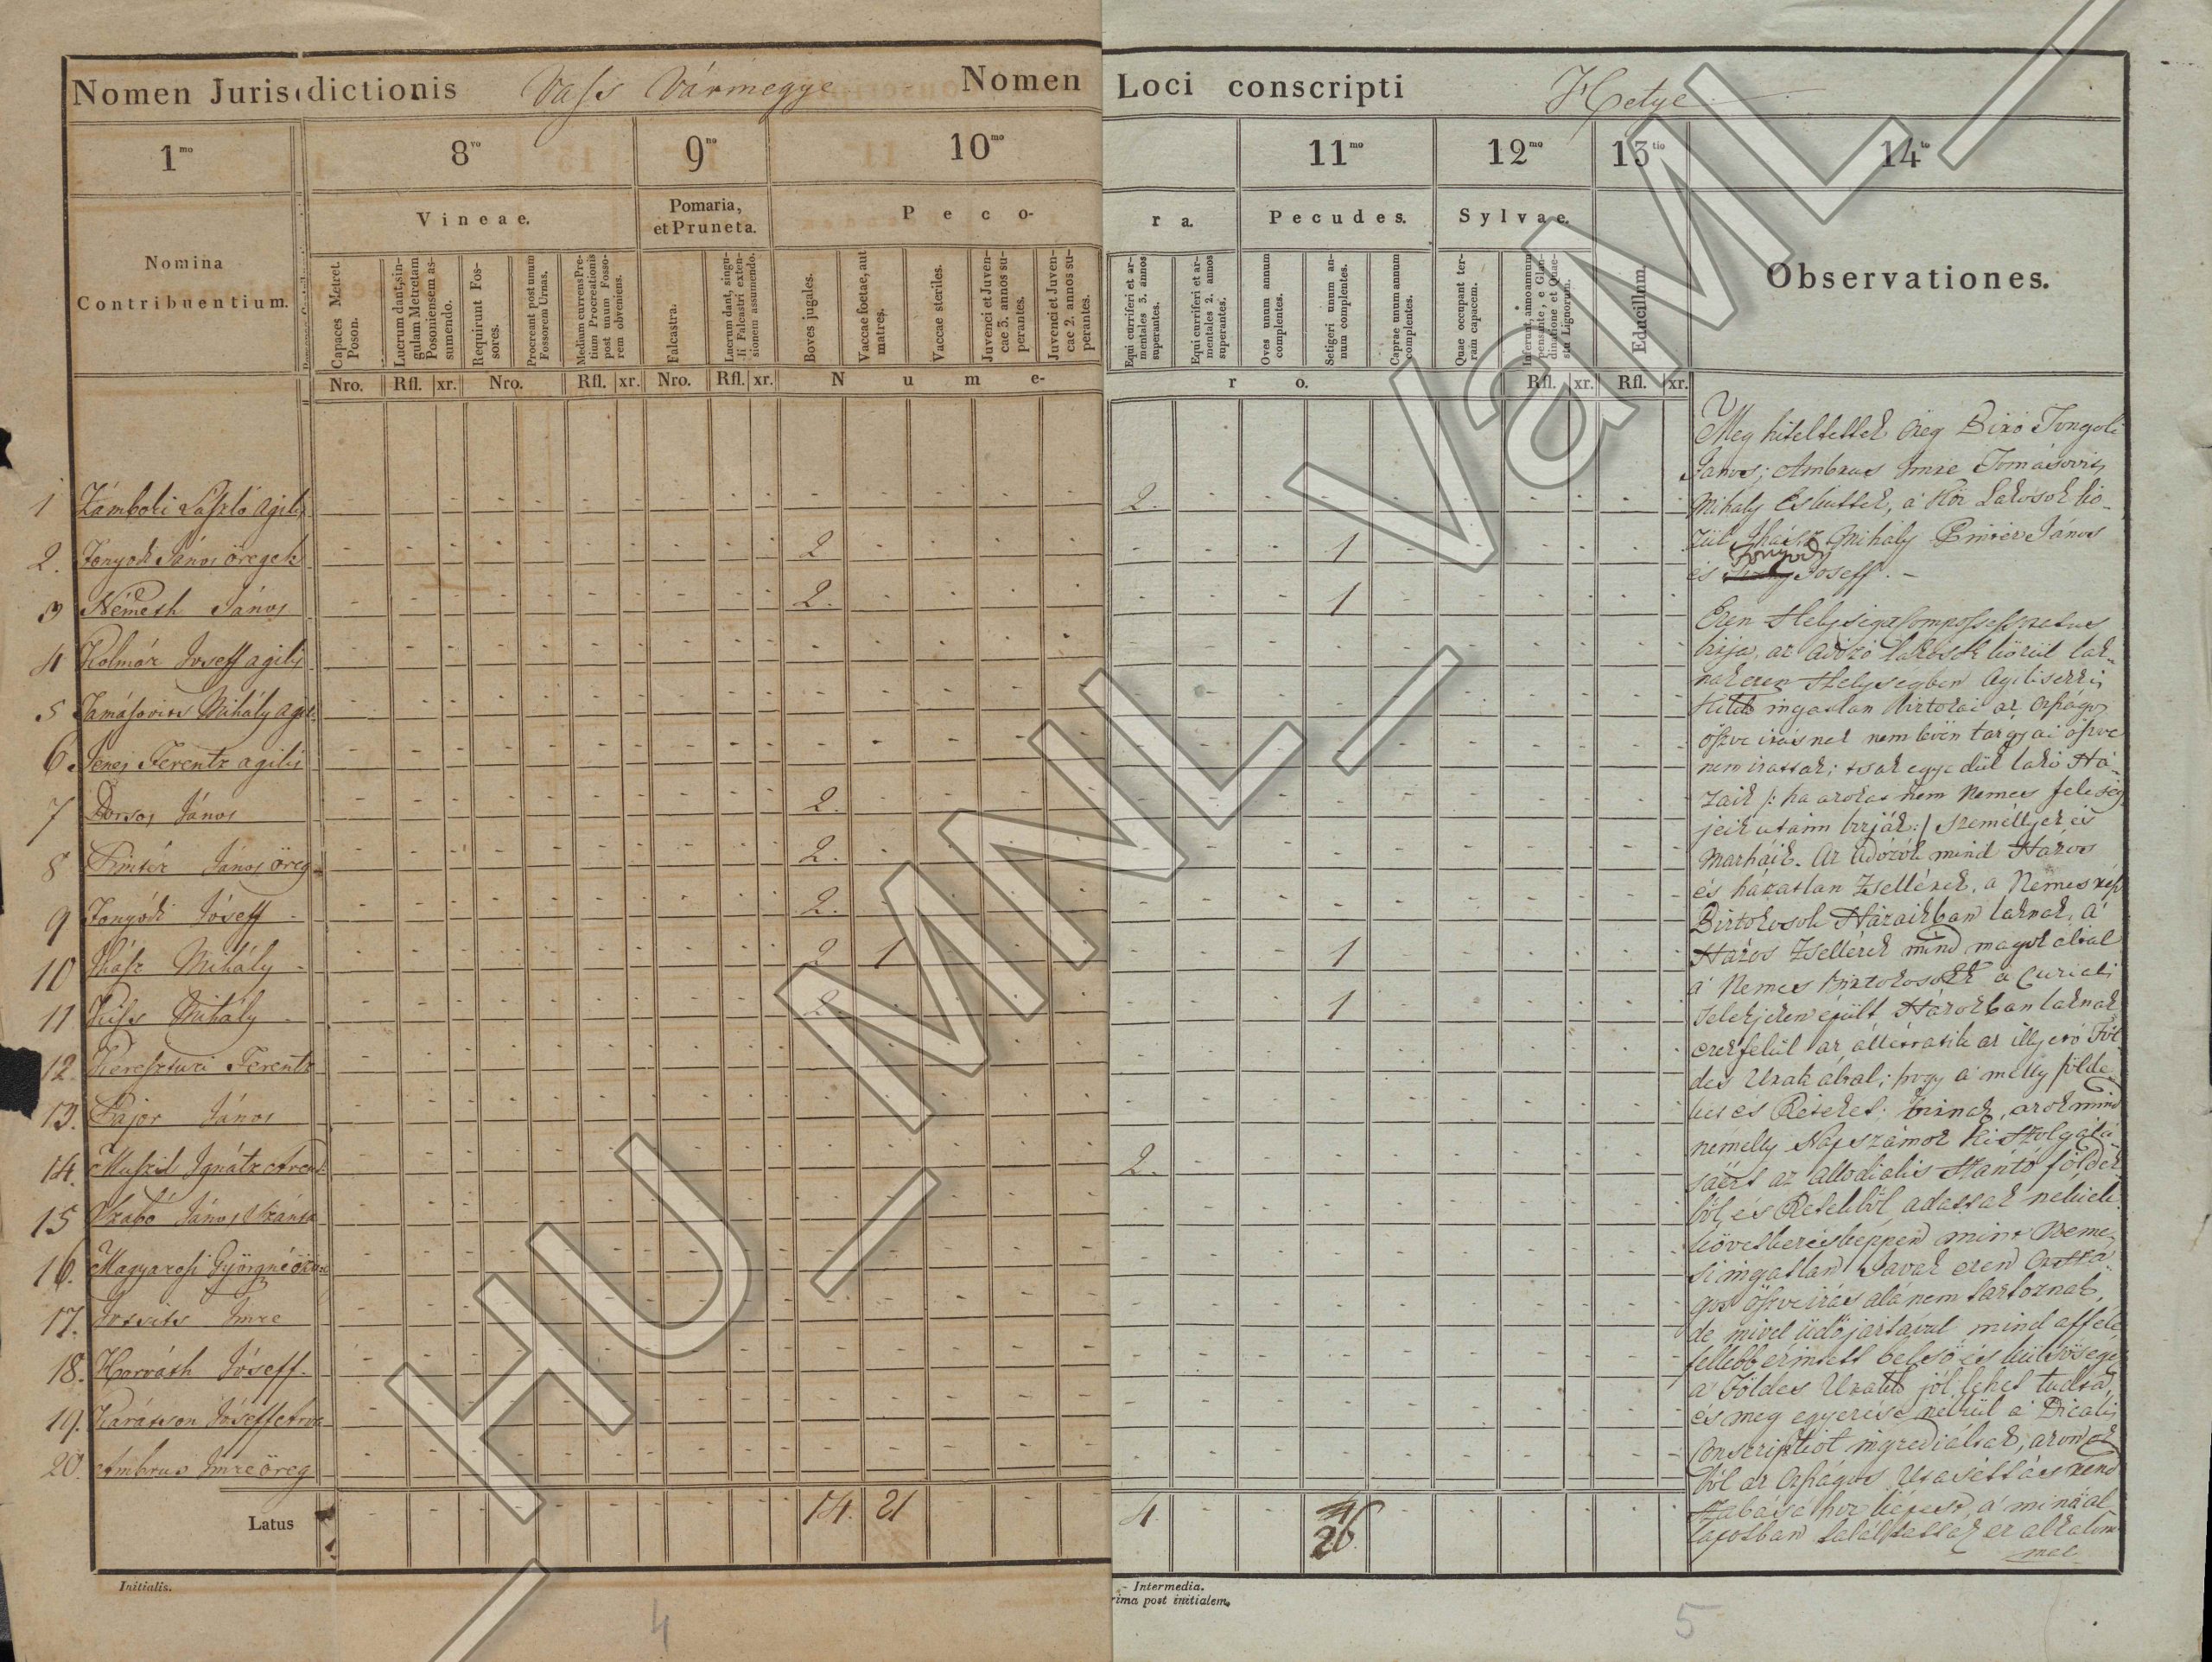 Nomen Jurisdictionis Vass Vármegye Nomen Loci conscripti Hetye
1mo 8vo 9no 10mo 11mo 12mo 13tio 14to
Nomina Contribuentium.
Vineae.
Pomaria, et Pruneta.
Pecora.
Pecudes.
Sylvae.
Educillum.
Observationes.
Capaces Metret. Poson.
Lucrum dant, singulam Metretam Posoniensem assumendo.
Requirunt Fossores.
Procreant post unum Fossorem Urnas.
Medium currens Pretium Procreationis post unum Fossorem obveniens.
Falcastra.
Lucrum dant, singuli Falcastri extensionem assumendo.
Boves jugales.
Vaccae foetae, aut matres.
Vaccae steriles.
Juvenci et Juvencae 3. annos superantes.
Juvenci et Juvencae 2. annos superantes.
Equi curriferi et armentales 3. annos superantes.
Equi curriferi et armentales 2. annos superantes.
Oves unum annum complentes.
Setigeri unum annum complentes.
Caprae unum annum complentes.
Quae occupant terram capacem.
Nro. Rfl. xr. Nro. Rfl. xr. Nro. Rfl. xr. N u m e- r o. Rfl. xr. Rfl. xr.
1 Zámboki László agilis 2.
2. Fonyodi János öregeb 2 1
3 Németh János 2. 1
4 Kolmár Joseff agilis
5 Tamásovits Mihály agil.
6. Jenei Ferentz agilis
7 Dorsos János 2.
8 Pintér János öreg 2.
9 Fonyódi Jóseff 2.
10 Ihász Mihály 2 1 1
11 Kiss Mihály 2. 1
12. Kereszturi Ferentz
13. Pajor János
14. Muszil Ignátz 2.
15 Szabó János
16. Magyarosi Györgyné
17. Imre
18. Horváth Jóseff.
19. Karátson Jóseff
20. Ambrus Imre öreg
Latus 14. 21 4 26.
Meg hiteltettek Öreg Biró
János; Ambrus Imre Tomásovits
Mihály Esküttek, a Köz Lakosok kö-
zül Ihász Mihály Pintér János
és Fonyodi Joseff. -
Ezen Helységet Compossessoratus
birja, az adózó lakosok közül lak-
nak ezen Helységben Agilisek
ingatlan birtokai az Országos
öszve irásnak nem lévén tárgyai öszve
nem irattak; tsak egyedül lakó Há-
zaik /: ha azokat nem Nemes feleség
jeik utánn birják :/ személlyek és
Marháik. Az adózók mind Házos
és házatlan Zsellérek, a Nemes rész
Birtokosok Házaikban laknak, a
Házos Zsellérek mind magok által
a Nemes Birtokosok a Curiali
Telekjeken épült Házokban laknak
ezekfelül az állittatik az illyető Föl-
des Urak által; hogy a melly földe-
ket és Réteket birnak, azok mind
némelly Napszámok ki szolgálá-
sáért az allodialis szántó földek
ből, és Rétekből adattak nekiek
következésképpen mint Neme-
si ingatlan Javak ezen Orszá-
gos öszveirás alá nem tartoznak,
de mivel üdőjártával mind affele
fellebb érintett belső és külsőséges
a Földes Urak jól lehet tudta,
és meg egyezése nélkül a Dicalis
Conscriptiot ingrediáltak, azon ok
ból az Országos Utasittás rend
szabása hoz képest, a mináal
lapotban találtattak ez alkalom-
mal
Initialis.
Intermedia.
rima post initialem.
4
5
HU_MNL_VaML_